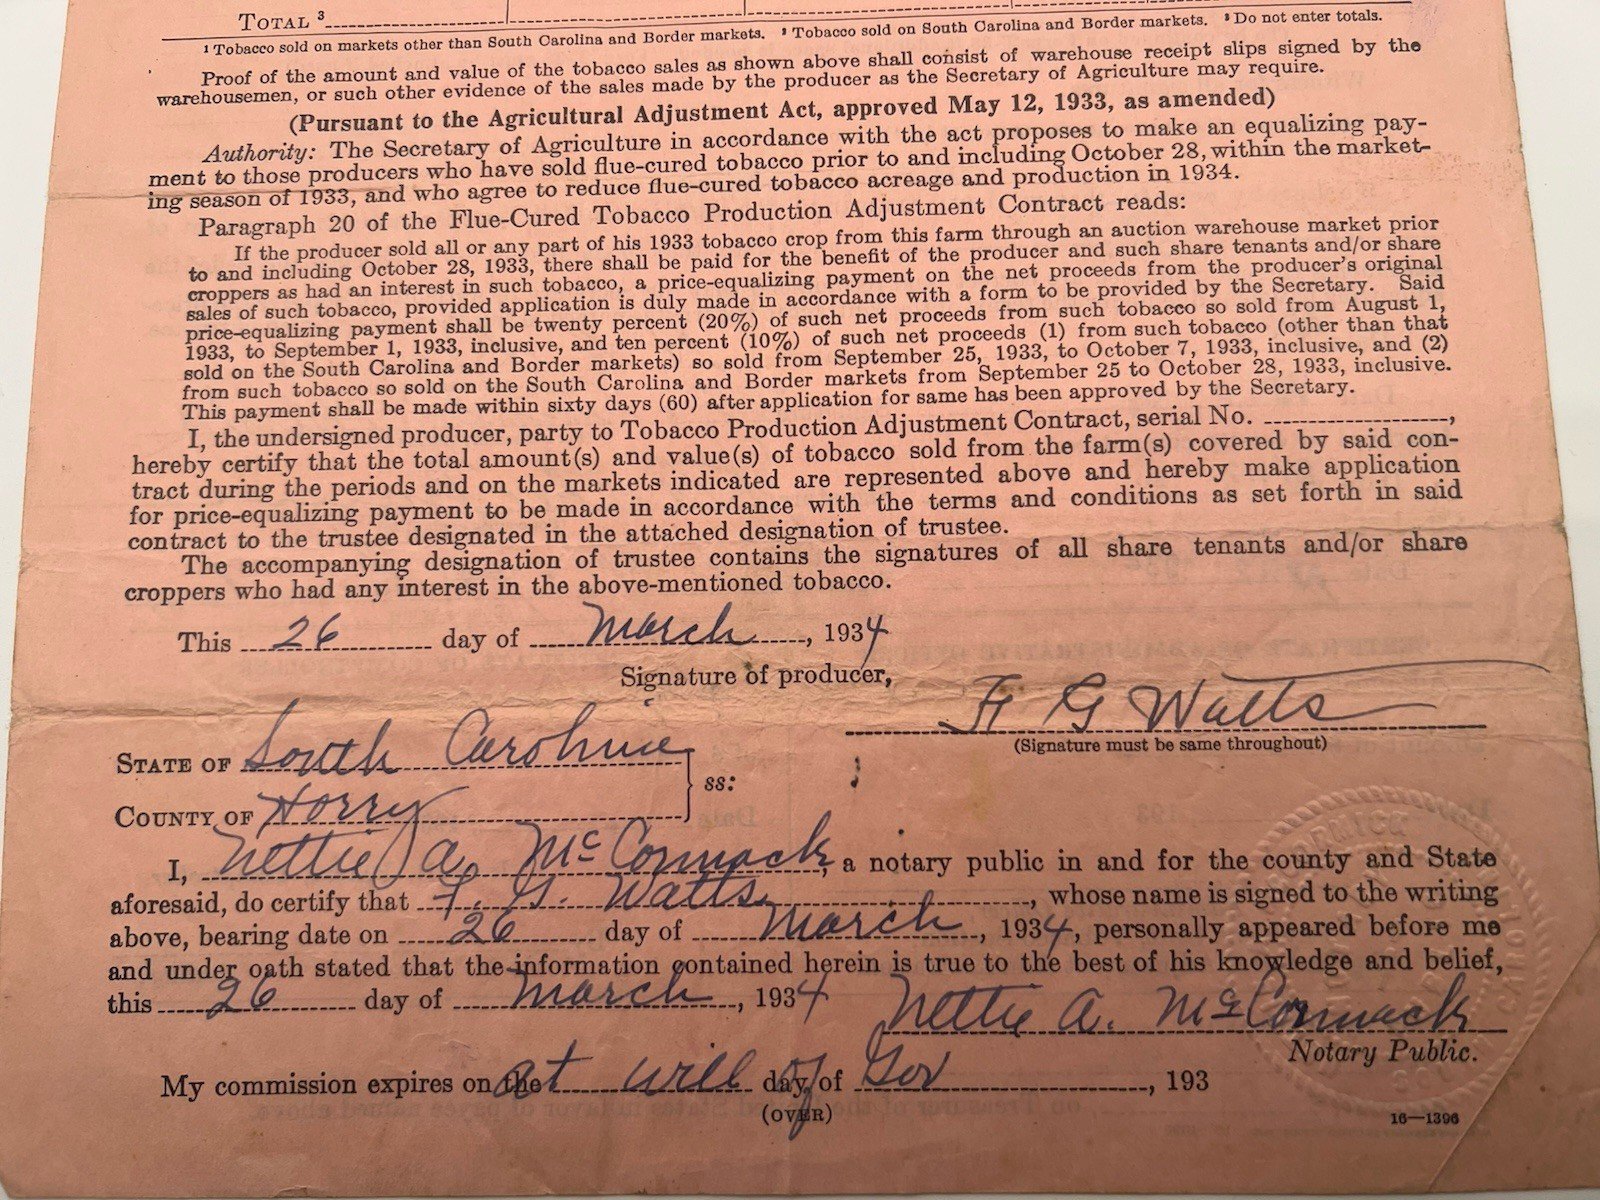 TOTAL ³
¹ Tobacco sold on markets other than South Carolina and Border markets. ² Tobacco sold on South Carolina and Border markets. ³ Do not enter totals.
Proof of the amount and value of the tobacco sales as shown above shall consist of warehouse receipt slips signed by the
warehousemen, or such other evidence of the sales made by the producer as the Secretary of Agriculture may require.
(Pursuant to the Agricultural Adjustment Act, approved May 12, 1933, as amended)
Authority: The Secretary of Agriculture in accordance with the act proposes to make an equalizing pay-
ment to those producers who have sold flue-cured tobacco prior to and including October 28, within the market-
ing season of 1933, and who agree to reduce flue-cured tobacco acreage and production in 1934.
Paragraph 20 of the Flue-Cured Tobacco Production Adjustment Contract reads:
If the producer sold all or any part of his 1933 tobacco crop from this farm through an auction warehouse market prior
to and including October 28, 1933, there shall be paid for the benefit of the producer and such share tenants and/or share
croppers as had an interest in such tobacco, a price-equalizing payment on the net proceeds from the producer's original
sales of such tobacco, provided application is duly made in accordance with a form to be provided by the Secretary. Said
price-equalizing payment shall be twenty percent (20%) of such net proceeds from such tobacco so sold from August 1,
1933, to September 1, 1933, inclusive, and ten percent (10%) of such net proceeds (1) from such tobacco (other than that
sold on the South Carolina and Border markets) so sold from September 25, 1933, to October 7, 1933, inclusive, and (2)
from such tobacco so sold on the South Carolina and Border markets from September 25 to October 28, 1933, inclusive.
This payment shall be made within sixty days (60) after application for same has been approved by the Secretary.
I, the undersigned producer, party to Tobacco Production Adjustment Contract, serial No. ,
hereby certify that the total amount(s) and value(s) of tobacco sold from the farm(s) covered by said con-
tract during the periods and on the markets indicated are represented above and hereby make application
for price-equalizing payment to be made in accordance with the terms and conditions as set forth in said
contract to the trustee designated in the attached designation of trustee.
The accompanying designation of trustee contains the signatures of all share tenants and/or share
croppers who had any interest in the above-mentioned tobacco.
This 26 day of March, 1934
Signature of producer,
F G Watts
(Signature must be same throughout)
STATE OF South Carolina
ss:
COUNTY OF Horry
I, Nettie A. McCormack, a notary public in and for the county and State
aforesaid, do certify that F. G. Watts, whose name is signed to the writing
above, bearing date on 26 day of March, 1934, personally appeared before me
and under oath stated that the information contained herein is true to the best of his knowledge and belief,
this 26 day of March, 1934
Nettie A. McCormack
Notary Public.
My commission expires on the at will day of of Gov, 193
(OVER)
16—1396